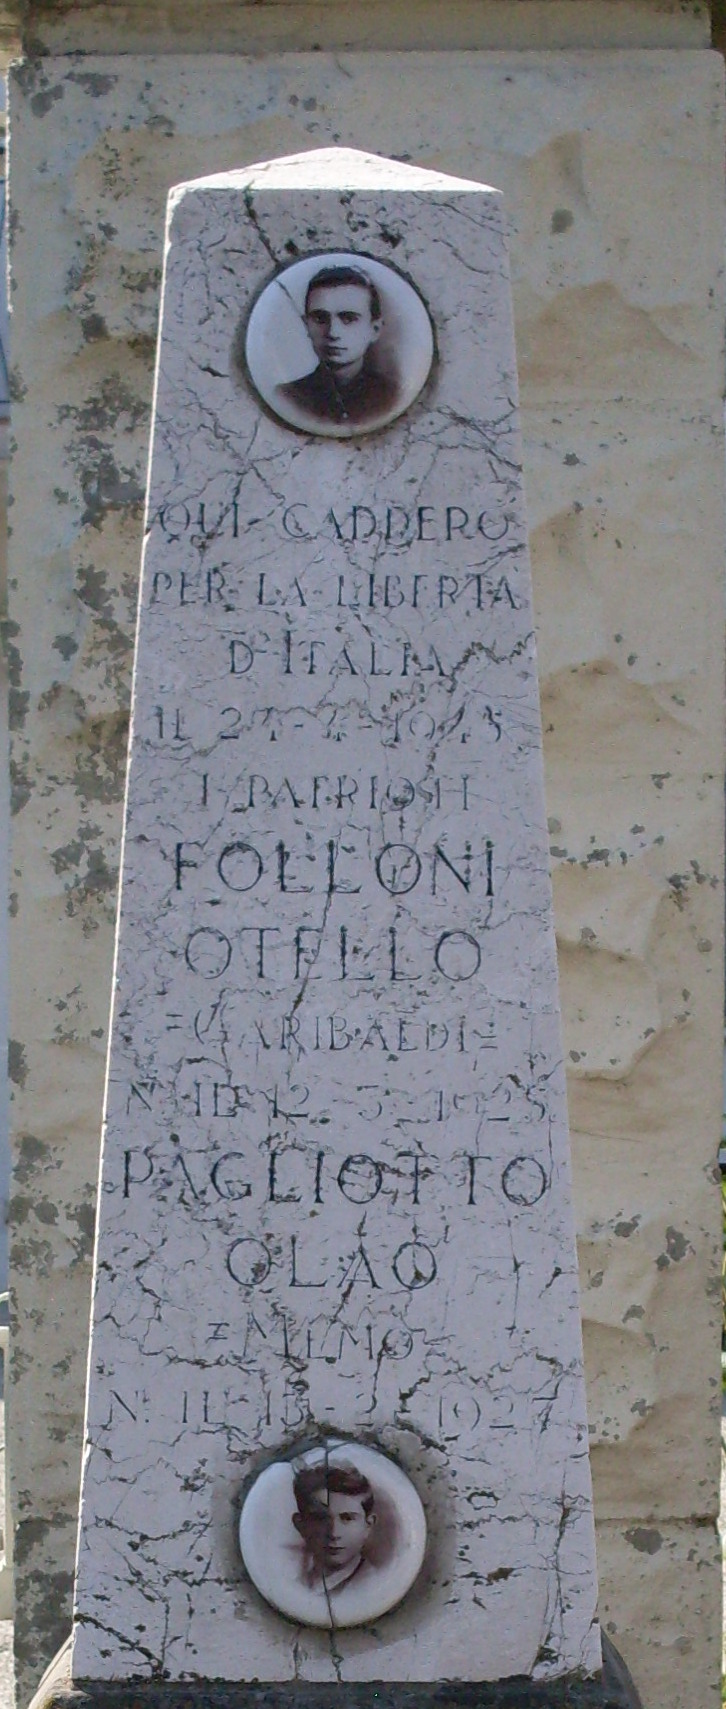 QUI CADDERO
PER LA LIBERTÀ
D'ITALIA
IL 24-4-1945
I PATRIOTI
FOLLONI
OTELLO
=GARIBALDI=
N. IL 12-3-1925
PAGLIOTTO
OLAO
=MEMO=
N. IL 2 1927